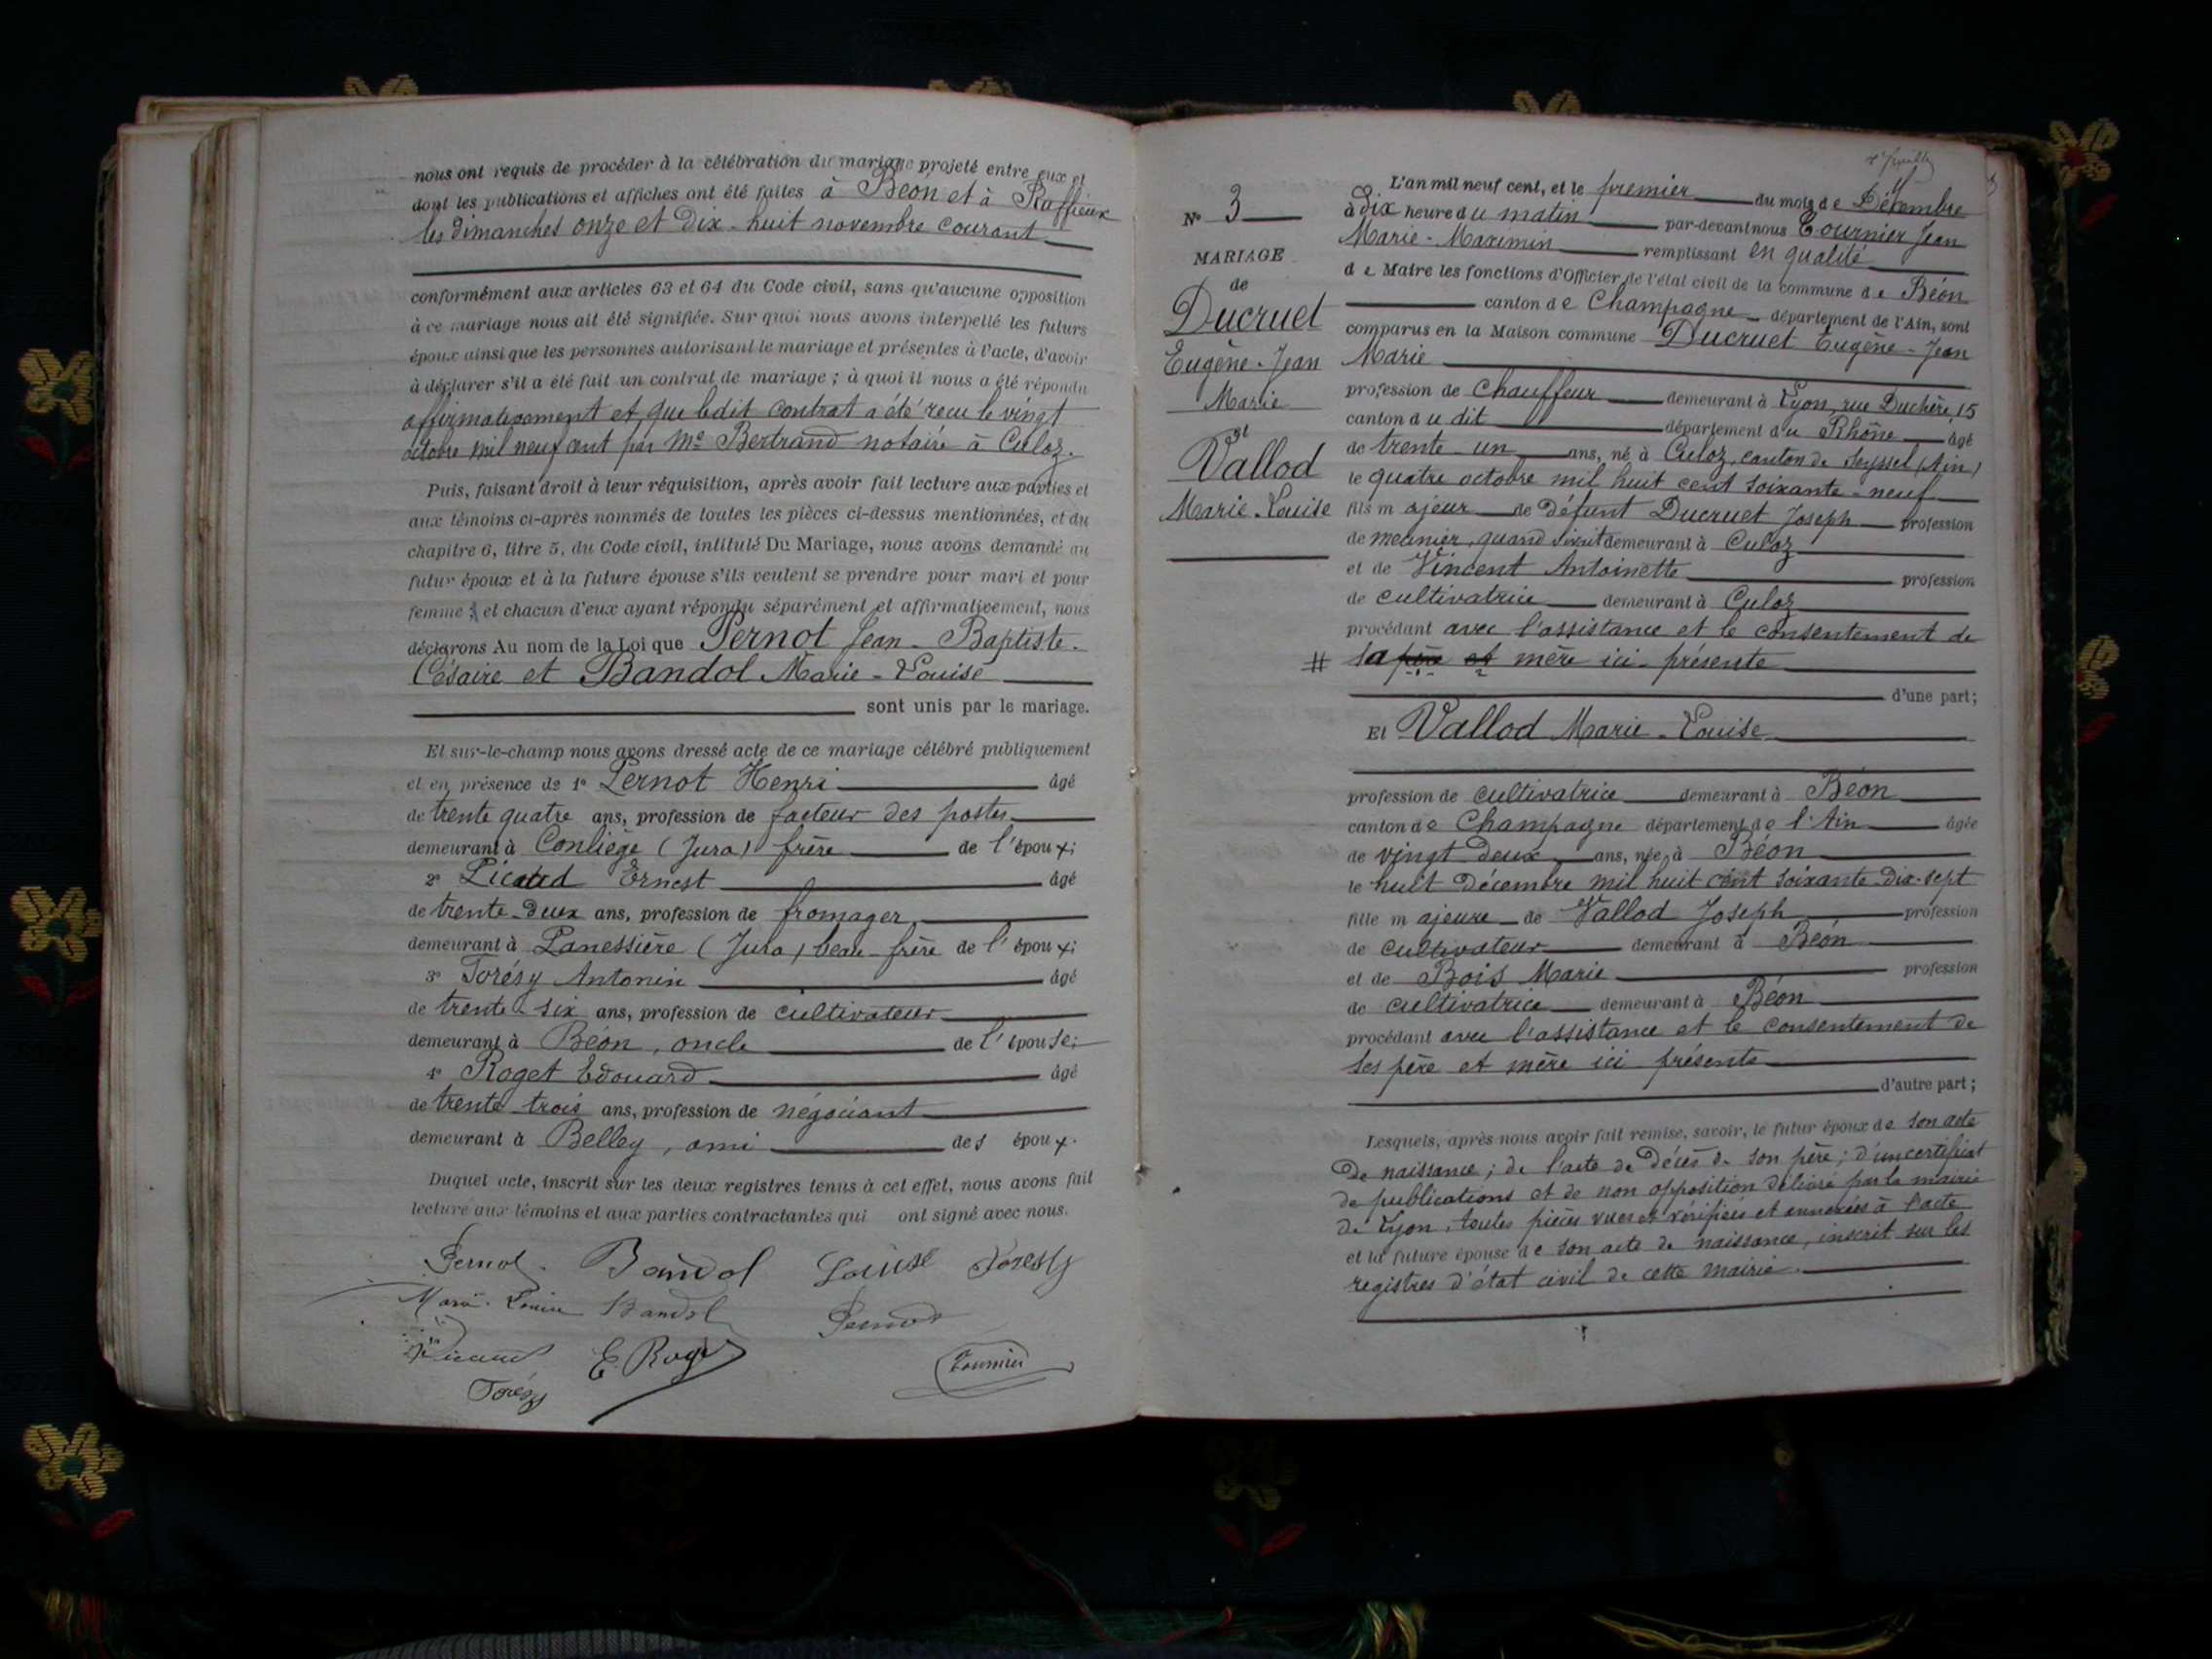 nous ont requis de procéder à la célébration du mariage projeté entre eux et
dont les publications et affiches ont été faites à Béon et à Ruffieux
les dimanches onze et dix-huit novembre courant
conformément aux articles 63 et 64 du Code civil, sans qu'aucune opposition
à ce mariage nous ait été signifiée. Sur quoi nous avons interpellé les futurs
époux ainsi que les personnes autorisant le mariage et présentes à l'acte, d'avoir
à déclarer s'il a été fait un contrat de mariage ; à quoi il nous a été répondu
affirmativement et que ledit contrat a été reçu le vingt
octobre mil neuf cent par Me Bertrand notaire à Culoz.
Puis, faisant droit à leur réquisition, après avoir fait lecture aux parties et
aux témoins ci-après nommés de toutes les pièces ci-dessus mentionnées, et du
chapitre 6, titre 5, du Code civil, intitulé Du Mariage, nous avons demandé au
futur époux et à la future épouse s'ils veulent se prendre pour mari et pour
femme ; et chacun d'eux ayant répondu séparément et affirmativement, nous
déclarons Au nom de la Loi que Pernot Jean-Baptiste-
Césaire et Bandol Marie-Louise
sont unis par le mariage.
Et sur-le-champ nous avons dressé acte de ce mariage célébré publiquement
et en présence de 1° Pernot Henri âgé
de trente quatre ans, profession de facteur des postes
demeurant à Conliège (Jura) frère de l'époux ;
2° Picaud Ernest âgé
de trente-deux ans, profession de fromager
demeurant à Panessière (Jura) beau-frère de l'époux ;
3° Torésy Antonin âgé
de trente-six ans, profession de cultivateur
demeurant à Béon, oncle de l'épouse ;
4° Roget Edouard âgé
de trente-trois ans, profession de négociant
demeurant à Belley, ami des époux.
Duquel acte, inscrit sur les deux registres tenus à cet effet, nous avons fait
lecture aux témoins et aux parties contractantes qui ont signé avec nous.
Pernot Bandol Louise Toresy
Marie-Louise Bandol Pernot
Picaud E. Roget Tournier
Torésy
2e feuillet
N° 3
MARIAGE
de
Ducruet
Eugène-Jean
Marie
et
Vallod
Marie-Louise
L'an mil neuf cent, et le premier du mois de Décembre
à dix heure du matin par-devant nous Tournier Jean
Marie-Maximin remplissant en qualité
de Maire les fonctions d'Officier de l'état civil de la commune de Béon
canton de Champagne département de l'Ain, sont
comparus en la Maison commune Ducruet Eugène-Jean
Marie
profession de chauffeur demeurant à Lyon, rue Duchère, 15
canton du dit département du Rhône âgé
de trente-un ans, né à Culoz, canton de Seyssel (Ain)
le quatre octobre mil huit cent soixante-neuf
fils majeur de défunt Ducruet Joseph profession
de meunier, quand vivait demeurant à Culoz
et de Vincent Antoinette profession
de cultivatrice demeurant à Culoz
procédant avec l'assistance et le consentement de
# sa père et mère ici-présente
d'une part ;
Et Vallod Marie-Louise
profession de cultivatrice demeurant à Béon
canton de Champagne département de l'Ain âgée
de vingt-deux ans, née à Béon
le huit décembre mil huit cent soixante-dix-sept
fille majeure de Vallod Joseph profession
de cultivateur demeurant à Béon
et de Bois Marie profession
de cultivatrice demeurant à Béon
procédant avec l'assistance et le consentement de
ses père et mère ici présents
d'autre part ;
Lesquels, après nous avoir fait remise, savoir, le futur époux de son acte
de naissance ; de l'acte de décès de son père ; d'un certificat
de publications et de non opposition délivré par la mairie
de Lyon, toutes pièces vues et vérifiées et annexées à l'acte
et la future épouse de son acte de naissance, inscrit sur les
registres d'état civil de cette mairie.